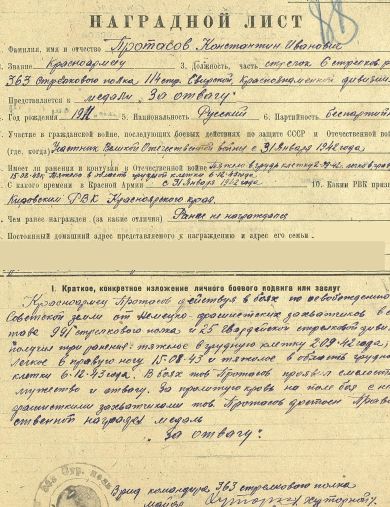 88
НАГРАДНОЙ ЛИСТ
Фамилия, имя и отчество Протасов Константин Иванович
Звание Красноармеец 3. Должность, часть стрелок 6 стрелков р
363 Стрелкового полка 114 стр. Свирской, Краснознаменной дивизии
Представляется к медали „За отвагу"
Год рождения 5. Национальность Русский 6. Партийность беспартий
Участие в гражданской войне, последующих боевых действиях по защите СССР и Отечественной вой
(где, когда) Участник Великой Отечественной войны с 31 Января 1942 года
Имеет ли ранения и контузии в Отечественной войне Тяжело в грудн клетку
15-08-43 тяжелое в область грудной клетки 6-12-43 года
С какого времени в Красной Армии с 31 Января 1942 года 10. Каким РВК призв
РВК Красноярского края.
Чем ранее награжден (за какие отличия) Ранее не награждался
Постоянный домашний адрес представляемого к награждению и адрес его семьи
I. Краткое, конкретное изложение личного боевого подвига или заслуг
Красноармеец Протасов действуя в боях по освобождению
Советской земли от немецко-фашистских захватчиков в со
таве 941 стрелкового полка и 25 Гвардейской стрелковой диви
получил три ранения: тяжелое в грудную клетку 2-09-42 года,
легкое в правую ногу 15-08-43 и тяжелое в область грудно
клетки 6-12-43 года. В боях тов. Протасов проявил смелость
мужество и отвагу. За пролитую кровь на поле боя с не
фашистскими захватчиками тов. Протасов достоин Прави
ственной награды медаль
„За отвагу".
Врид командира 363 стрелкового полка
майор Хуторной /Хуторной/